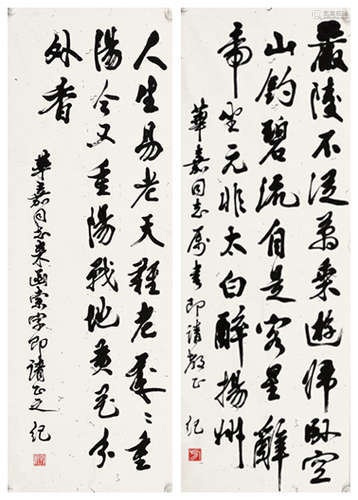 嚴陵不從萬乘遊歸臥空
山釣碧流自是客星辭
帝坐元非太白醉揚州
華嘉同志屬書即請教正 纪
人生易老天難老歲〻重
陽今又重陽戰地黃花分
外香
華嘉同志來函索字即請正之 纪